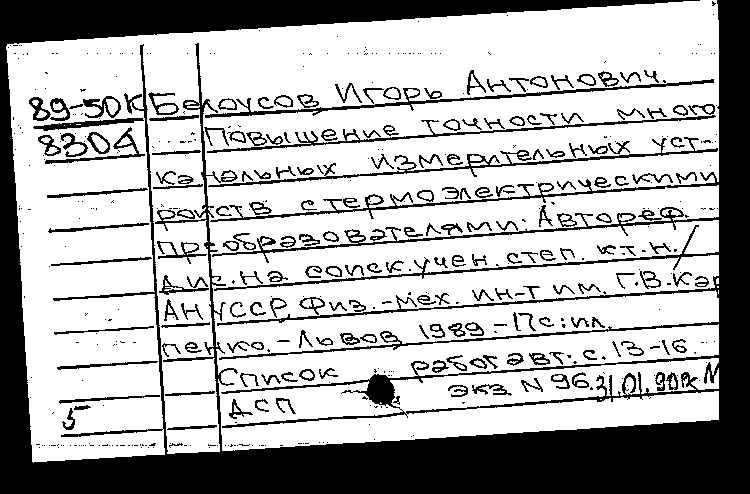 89-50К Белоусов Игорь Антонович.
8304 Повышение точности много
канальных измерительных уст-
ройств с термоэлектрическими
преобразователями: Автореф.
дис. на соиск. учен. степ. к.т.н. /
АН УССР, Физ.-мех. ин-т им. Г.В. Кар
пенко. - Львов, 1989. - 17с: ил.
Список работ авт.: с. 13-16
5 ДСП экз. N 96. 31.01.90